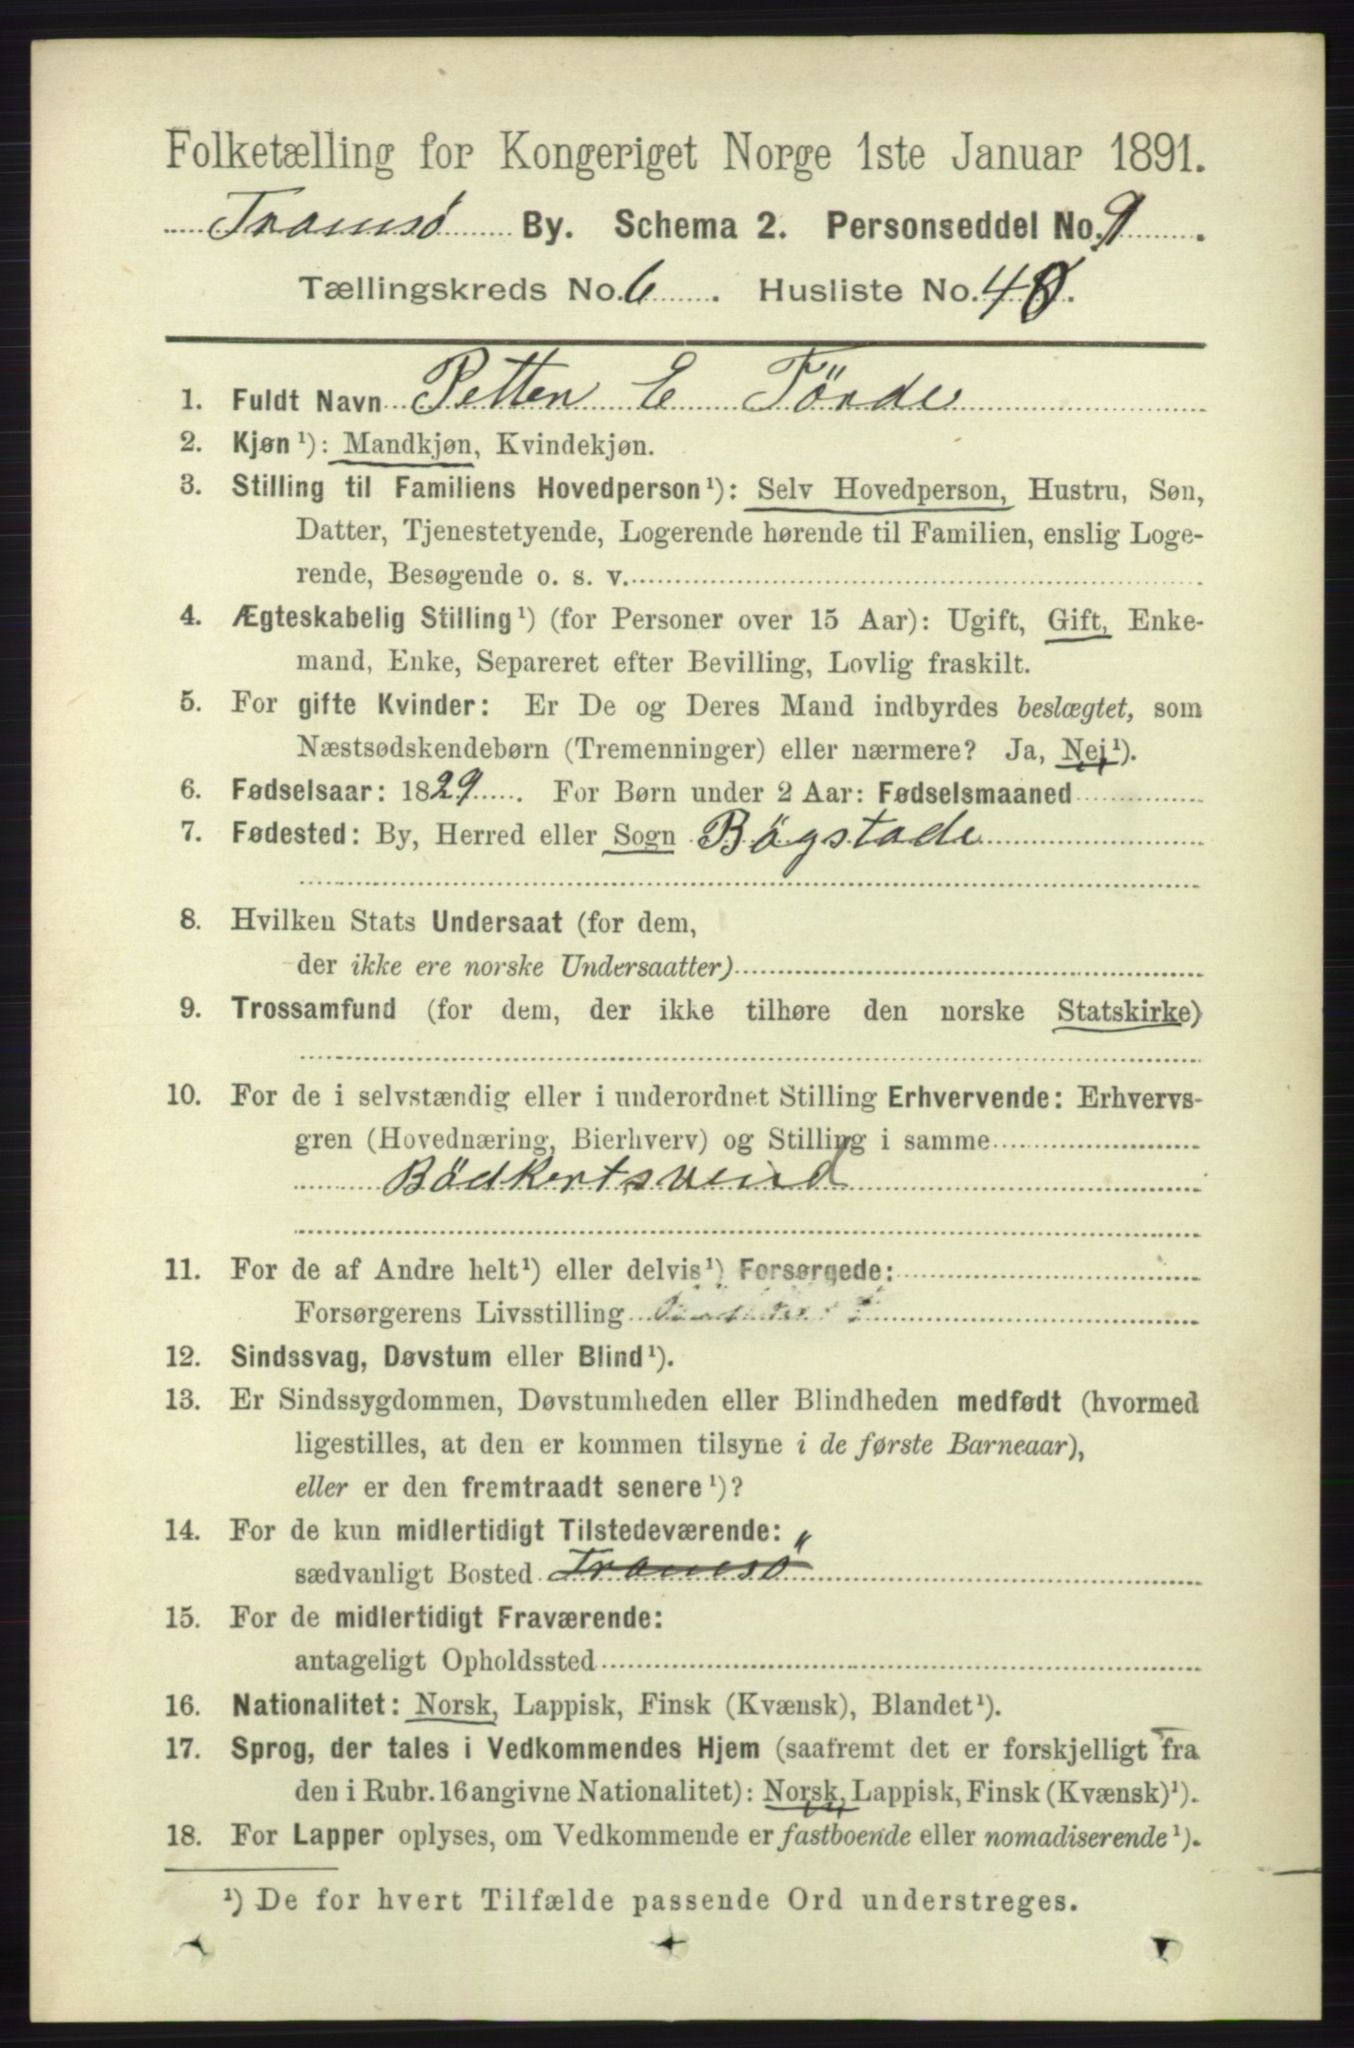 Folketælling for Kongeriget Norge 1ste Januar 1891.
Tromsö By. Schema 2. Personseddel No. 9.
Tællingskreds No. 6. Husliste No. 48.
1. Fuldt Navn Petter E Förde
2. Kjøn ¹): Mandkjøn, Kvindekjøn.
3. Stilling til Familiens Hovedperson ¹): Selv Hovedperson, Hustru, Søn,
Datter, Tjenestetyende, Logerende hørende til Familien, enslig Loge-
rende, Besøgende o. s. v.
4. Ægteskabelig Stilling ¹) (for Personer over 15 Aar): Ugift, Gift, Enke-
mand, Enke, Separeret efter Bevilling, Lovlig fraskilt.
5. For gifte Kvinder: Er De og Deres Mand indbyrdes beslægtet, som
Næstsødskendebørn (Tremenninger) eller nærmere? Ja, Nej ¹).
6. Fødselsaar: 1829. For Børn under 2 Aar: Fødselsmaaned
7. Fødested: By, Herred eller Sogn Bögstade
8. Hvilken Stats Undersaat (for dem,
der ikke ere norske Undersaatter)
9. Trossamfund (for dem, der ikke tilhøre den norske Statskirke)
10. For de i selvstændig eller i underordnet Stilling Erhvervende: Erhvervs-
gren (Hovednæring, Bierhverv) og Stilling i samme
Bödkertsvend
11. For de af Andre helt ¹) eller delvis ¹) Forsørgede:
Forsørgerens Livsstilling
12. Sindssvag, Døvstum eller Blind ¹).
13. Er Sindssygdommen, Døvstumheden eller Blindheden medfødt (hvormed
ligestilles, at den er kommen tilsyne i de første Barneaar),
eller er den fremtraadt senere ¹)?
14. For de kun midlertidigt Tilstedeværende: "
sædvanligt Bosted Tromsö
15. For de midlertidigt Fraværende:
antageligt Opholdssted
16. Nationalitet: Norsk, Lappisk, Finsk (Kvænsk), Blandet ¹).
17. Sprog, der tales i Vedkommendes Hjem (saafremt det er forskjelligt fra
den i Rubr. 16 angivne Nationalitet): Norsk, Lappisk, Finsk (Kvænsk) ¹).
18. For Lapper oplyses, om Vedkommende er fastboende eller nomadiserende ¹).
¹) De for hvert Tilfælde passende Ord understreges.